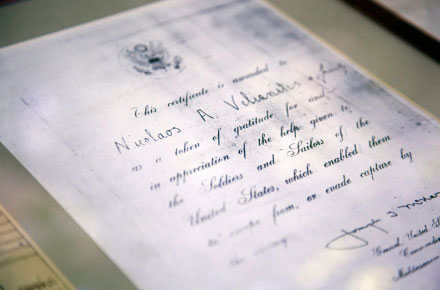 This certificate is awarded to
Nicolaos A. & family
as a token of gratitude for and
in appreciation of the help given to
the Soldiers and Sailors of the
United States, which enabled them
to escape from, or evade capture by
the enemy.
Joseph T.
General, United
Commanding
Mediterranean